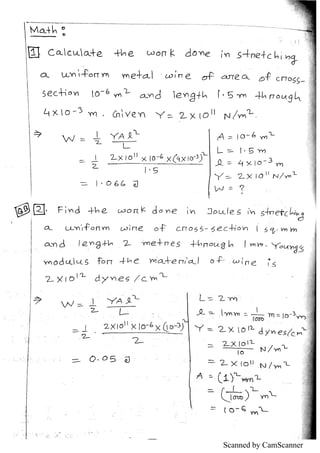 Math :
1 Calculate the work done in stretching
a uniform metal wire of area of cross-
section 10⁻⁶ m² and length 1.5 m through
4×10⁻³ m. Given Y = 2×10¹¹ N/m².
⇒ W = 1/2 YAl²/L
= 1/2 2×10¹¹ × 10⁻⁶ × (4×10⁻³)²/1.5
= 1.066 J
A = 10⁻⁶ m²
L = 1.5 m
l = 4×10⁻³ m
Y = 2×10¹¹ N/m²
W = ?
2. Find the work done in Joules in stretching
a uniform wire of cross-section 1 sq. mm
and length 2 metres through 1 mm. Youngs
modulus for the material of wire is
2×10¹² dynes/cm²
⇒ W = 1/2 YAl²/L
= 1/2 . 2×10¹¹ × 10⁻⁶ × (10⁻³)²/2
= 0.05 J
L = 2 m
l = 1mm = 1/1000 m = 10⁻³ m
Y = 2×10¹² dynes/cm²
= 2×10¹²/10 N/m²
= 2×10¹¹ N/m²
A = (1)² mm²
= (1/1000)² m²
= 10⁻⁶ m²
Scanned by CamScanner